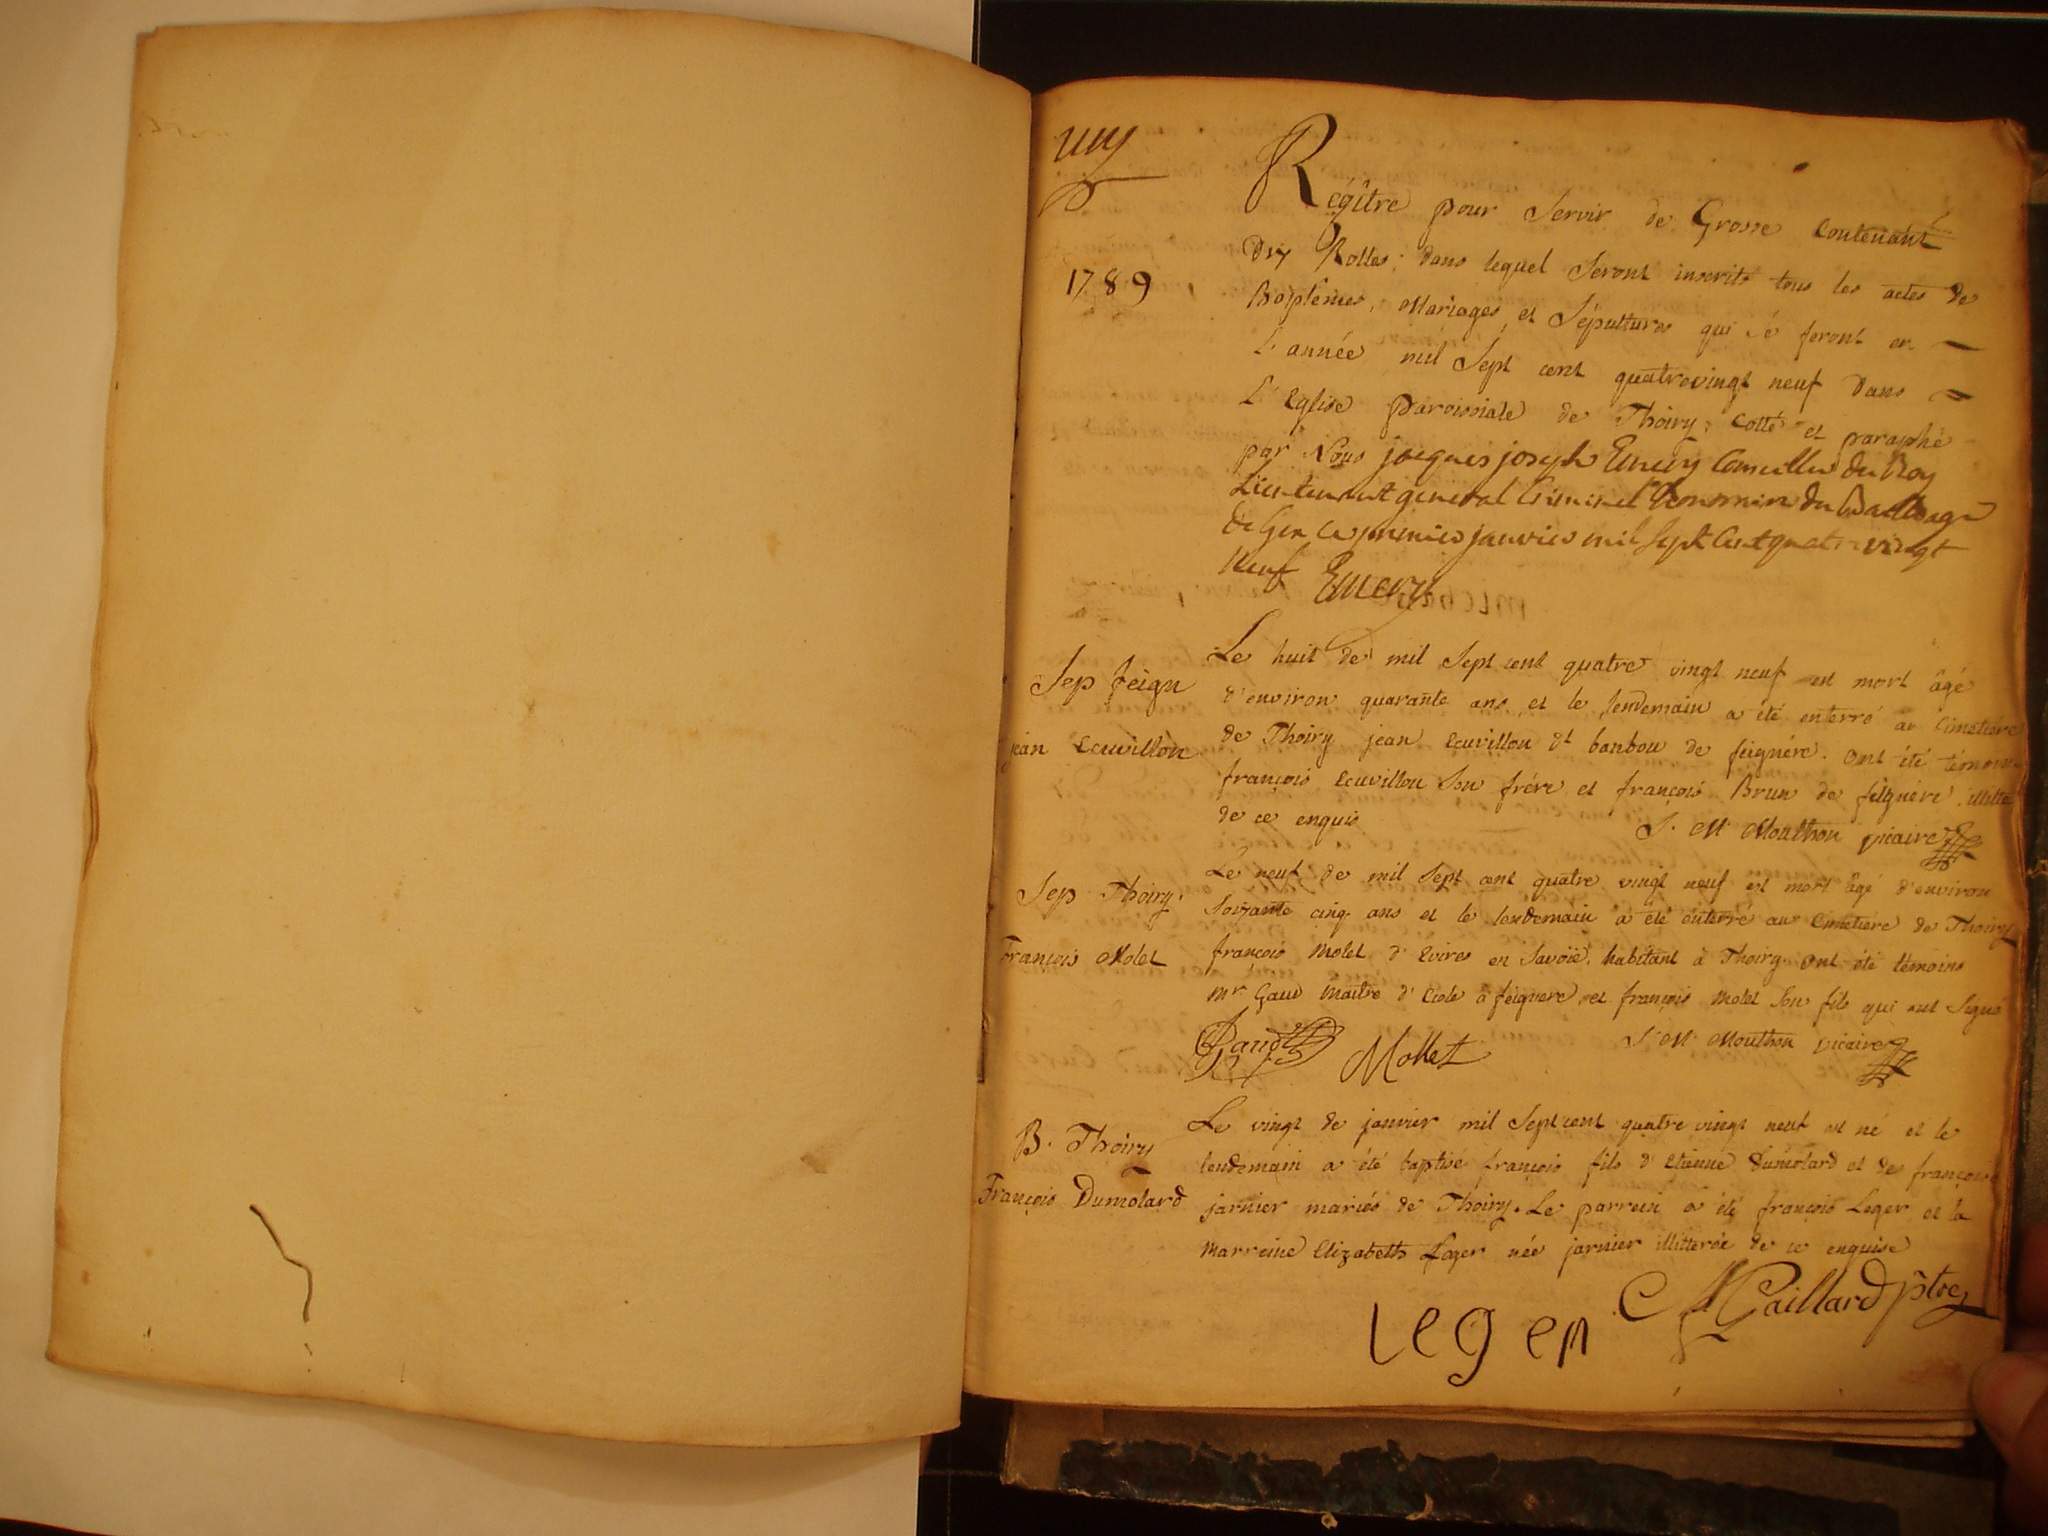 1789
Regître pour Servir de Grosse Contenant
dix Rolles; dans lequel Seront inscrits tous les actes de
Baptêmes, Mariages, et Sépultures qui sé feront en
L'année mil Sept cent quatrevingt neuf dans
L'Eglise paroissiale de Thoiry; Cotté et paraphé
par Nous jacques joseph Emery Conseiller du Roy
Lieutenant general Criminel du Bailliage
de Gex Ce premier janvier mil Sept Cent quatre vingt
Neuf Emery
Sep feign
jean Ecuvillon
Le huit de mil Sept cent quatre vingt neuf est mort âgé
d'environ quarante ans, et le lendemain a été enterré au Cimetière
de Thoiry jean Ecuvillon dt banbou de feignére. Ont été témoins
françois Ecuvillon Son frére et françois Brun de feignére
de ce enquis
J. M Mouthon vicaire
Sep Thoiry.
François Molet
Le neuf de mil Sept cent quatre vingt neuf est mort âgé d'environ
Soixante cinq ans et le lendemain a été enterré au Cimetiere de Thoiry
françois Molet d'Evires en Savoië, habitant à Thoiry. Ont été témoins
Mr Gaud Maitre d'Ecole à feignere, et françois Molet Son fils qui ont Signé
Gaud Mollet
J. M. Mouthon vicaire
B. Thoiry
François Dumolard
Le vingt de janvier mil Sept cent quatre vingt neuf est né et le
lendemain a été baptisé françois fils d'Etienne Dumolard et de françoise
jarnier mariés de Thoiry. Le parrein a été françois Leger et la
Marreine Elizabeth Leger née jarnier illitterée de ce enquise
leger Gaillard ptre